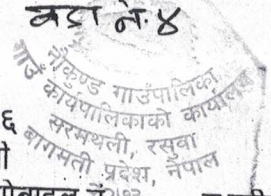 वडा नं. ४
नौकुण्ड गाउँपालिका
गाउँ कार्यपालिकाको कार्यालय
सरमथली, रसुवा
बागमती प्रदेश, नेपाल
६